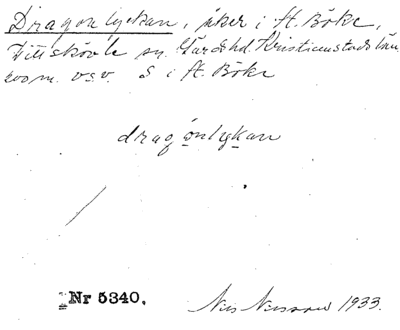 Dragonlyckan, åker i St. Böke,
Vittskövle sn. Gärds hd. Kristianstads län
500 m. v.s.v. S i St. Böke
dragonlykan
Nr 5340.
Nils Nilsson 1933.